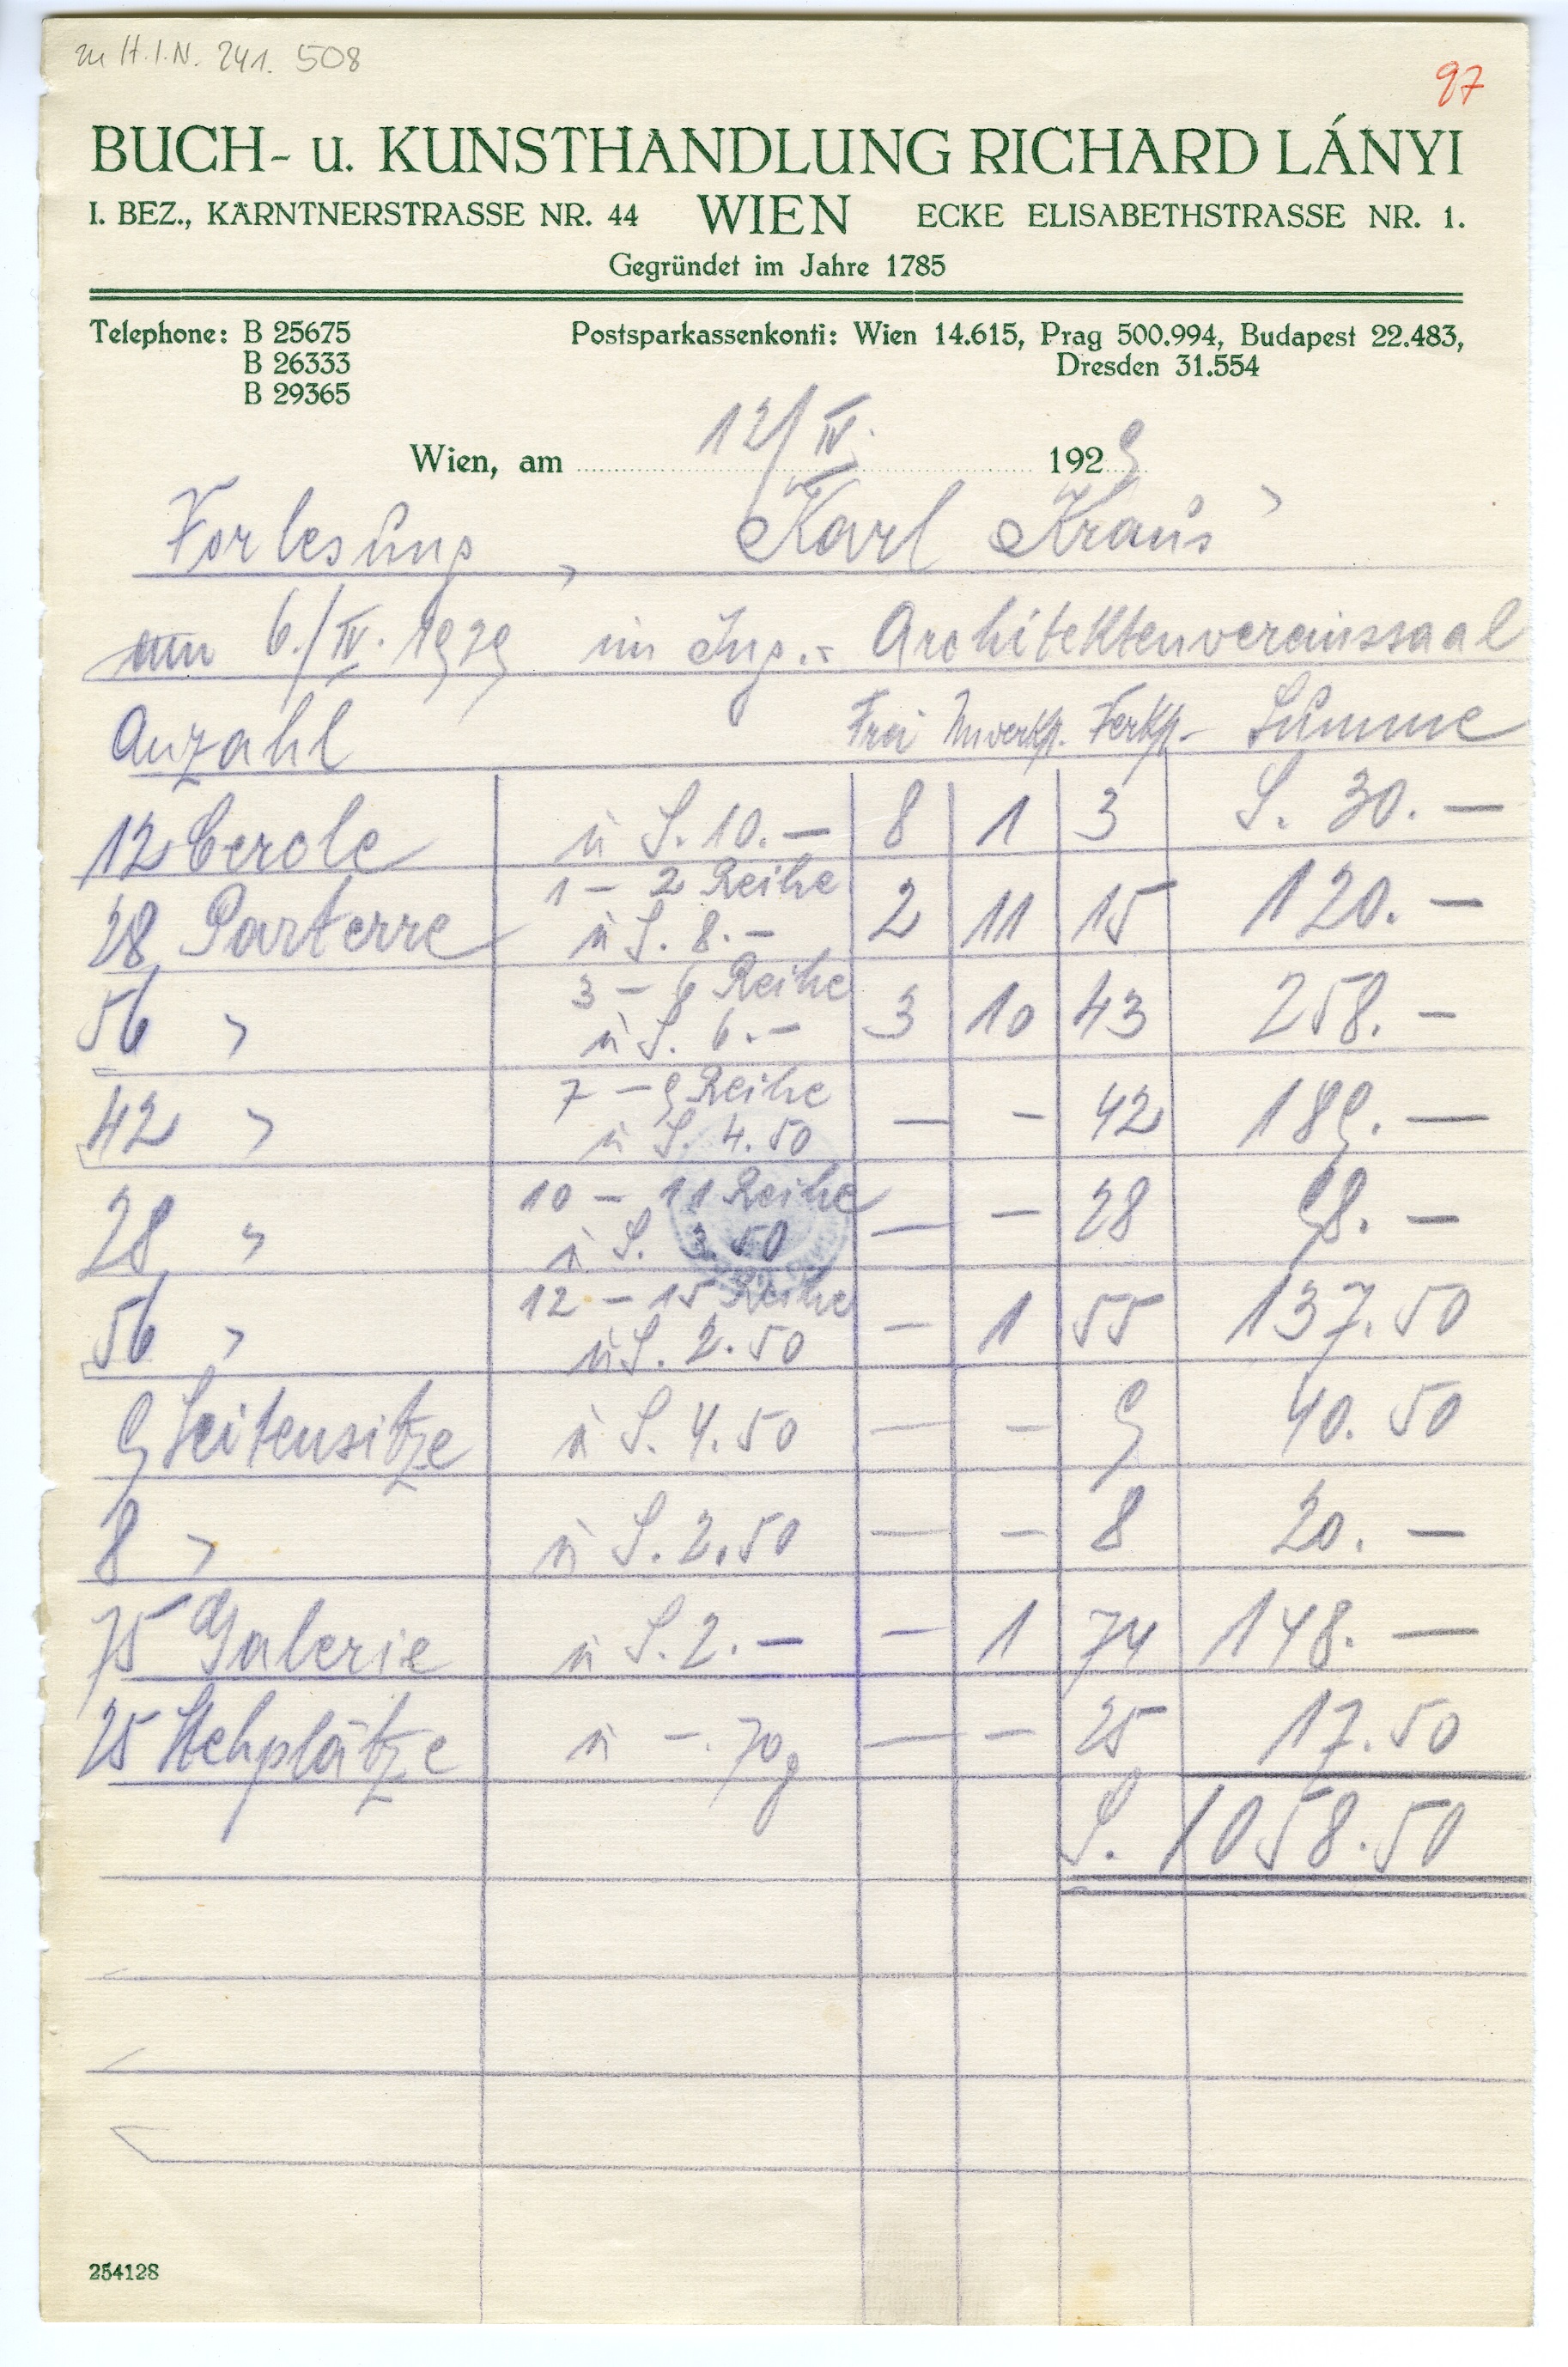 zu H.I.N. 241.508
97
BUCH- u. KUNSTHANDLUNG RICHARD LÁNYI
I. BEZ., KÄRNTNERSTRASSE NR. 44 WIEN ECKE ELISABETHSTRASSE NR. 1.
Gegründet im Jahre 1785
Telephone: B 25675 Postsparkassenkonti: Wien 14.615, Prag 500.994, Budapest 22.483,
B 26333 Dresden 31.554
B 29365
Wien, am 12/IV. 1929
Vorlesung „Karl Kraus"
am 6./IV. 1929 im Ing.- Architektenvereinssaal
Anzahl Frei Unverkft. Verkft. Summe
12 Cercle à S. 10.— 8 1 3 S. 30.—
1 – 2 Reihe
28 Parterre à S. 8.— 2 11 15 120.—
3 – 6 Reihe
56 " à S. 6.— 3 10 43 258.—
7 – 9 Reihe
42 " à S. 4.50 — — 42 189.—
10 – 11 Reihe
28 " à S. 3.50 — — 28 98.—
12 – 15 Reihe
56 " à S. 2.50 — 1 55 137.50
9 Seitensitze à S. 4.50 — — 9 40.50
8 " à S. 2.50 — — 8 20.—
75 Galerie à S. 2.— — 1 74 148.—
25 Stehplätze à —.70 g — — 25 17.50
S. 1058.50
254128